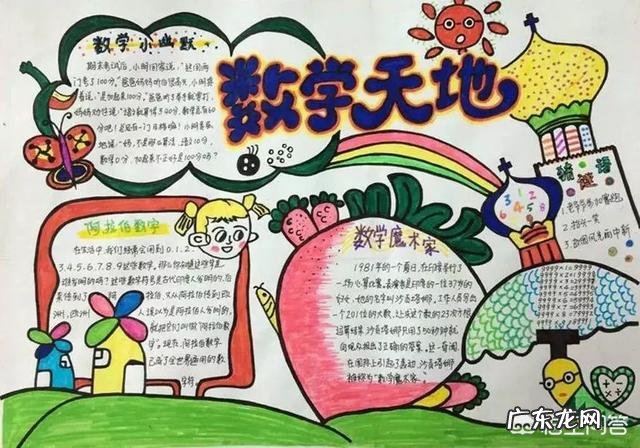 数学天地
数学小幽默
期末考试后,小明回家说:"这回两
门考了100分,"爸爸妈妈听后很高兴,小明接
着说:"是加起来100分。"爸爸听了举手就要打,
妈妈劝住说:"语文就算得了40分,数学总有60
分吧!总还有一门及格嘛!小明委屈
地说:"妈,不是那么算法,语文10分,
数学0分,加起来不正好是100分吗?
猜谜语
1.老爷爷参加赛跑
阿拉伯数字
在生活中,我们经常会用到0.1.2.
3.4.5.6.7.8.9这些数字。那么你知道这些数字是
谁发明的吗?这些数字符号是古代印度人发明的,后
来传到了阿拉伯,又从阿拉伯传到欧
洲,欧洲人误以为是阿拉伯人发明的,
就把它们叫做"阿拉伯数
字"。现在,阿拉伯数字
已成了全世界通用的数
字符.
数学魔术家
1981年的一个夏日,在印度举行了
一场心算比赛。表演者是印度的一位37岁的
妇女,她的名字叫沙贡塔娜。工作人员写出
一个201位的大数,让求这个数的23次方根
运算结果,沙贡塔娜只用了50秒钟就
向观众报出了正确的答案。这一奇闻,
在国际上引起了轰动,沙贡塔娜
被称为"数学魔术家"。
3 1 2
6 4 5 8
广东龙网